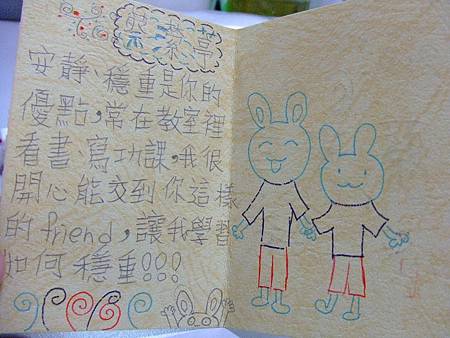 安靜、穩重是你的
優點，常在教室裡
看書、寫功課，我很
開心能交到你這樣
的 friend，讓我學習
如何穩重!!!